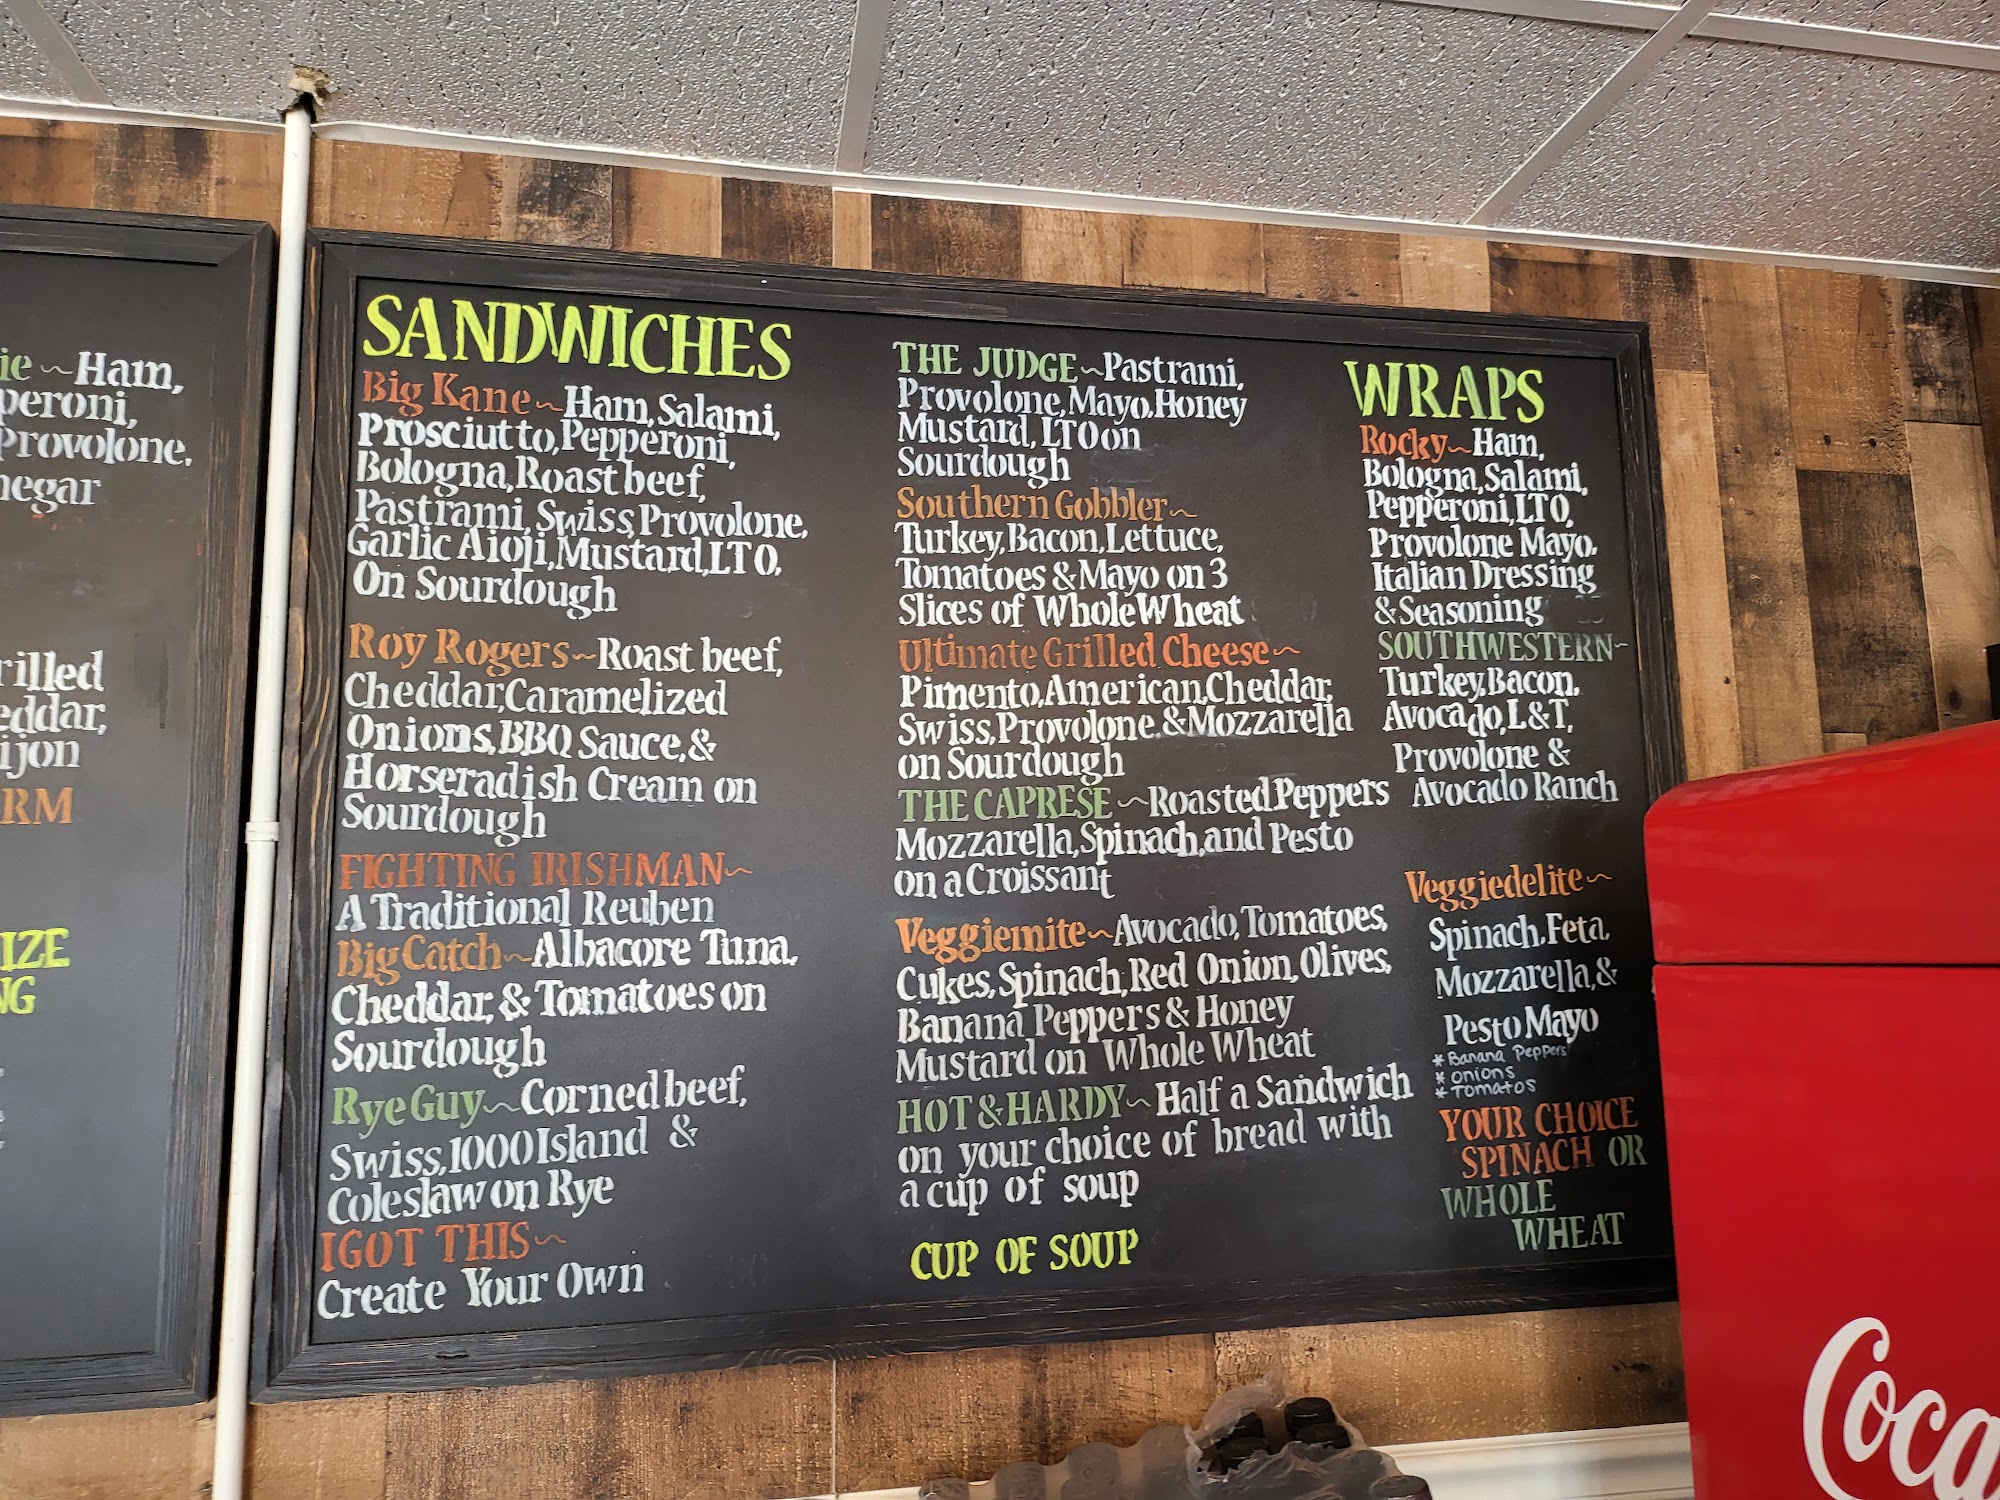 Ham,
Provolone,
SANDWICHES
Big Kane~Ham, Salami,
Prosciutto, Pepperoni,
Bologna, Roast beef,
Pastrami, Swiss, Provolone,
Garlic Aioli, Mustard, LTO,
On Sourdough
Roy Rogers~Roast beef,
Cheddar, Caramelized
Onions, BBQ Sauce, &
Horseradish Cream on
Sourdough
FIGHTING IRISHMAN~
A Traditional Reuben
Big Catch~Albacore Tuna,
Cheddar, & Tomatoes on
Sourdough
Rye Guy~Corned beef,
Swiss, 1000 Island &
Coleslaw on Rye
I GOT THIS~
Create Your Own
THE JUDGE~Pastrami,
Provolone, Mayo, Honey
Mustard, LTO on
Sourdough
Southern Gobbler~
Turkey, Bacon, Lettuce,
Tomatoes & Mayo on 3
Slices of Whole Wheat
Ultimate Grilled Cheese~
Pimento, American, Cheddar,
Swiss, Provolone & Mozzarella
on Sourdough
THE CAPRESE~Roasted Peppers
Mozzarella, Spinach, and Pesto
on a Croissant
Veggiemite~Avocado, Tomatoes,
Cukes, Spinach, Red Onion, Olives,
Banana Peppers & Honey
Mustard on Whole Wheat
HOT & HARDY~Half a Sandwich
on your choice of bread with
a cup of soup
CUP OF SOUP
WRAPS
Rocky~Ham,
Bologna, Salami,
Pepperoni, LTO,
Provolone Mayo,
Italian Dressing
& Seasoning
SOUTHWESTERN~
Turkey, Bacon,
Avocado, L&T,
Provolone &
Avocado Ranch
Veggiedelite~
Spinach, Feta,
Mozzarella, &
Pesto Mayo
* Banana Peppers
* onions
* Tomatos
YOUR CHOICE
SPINACH OR
WHOLE
WHEAT